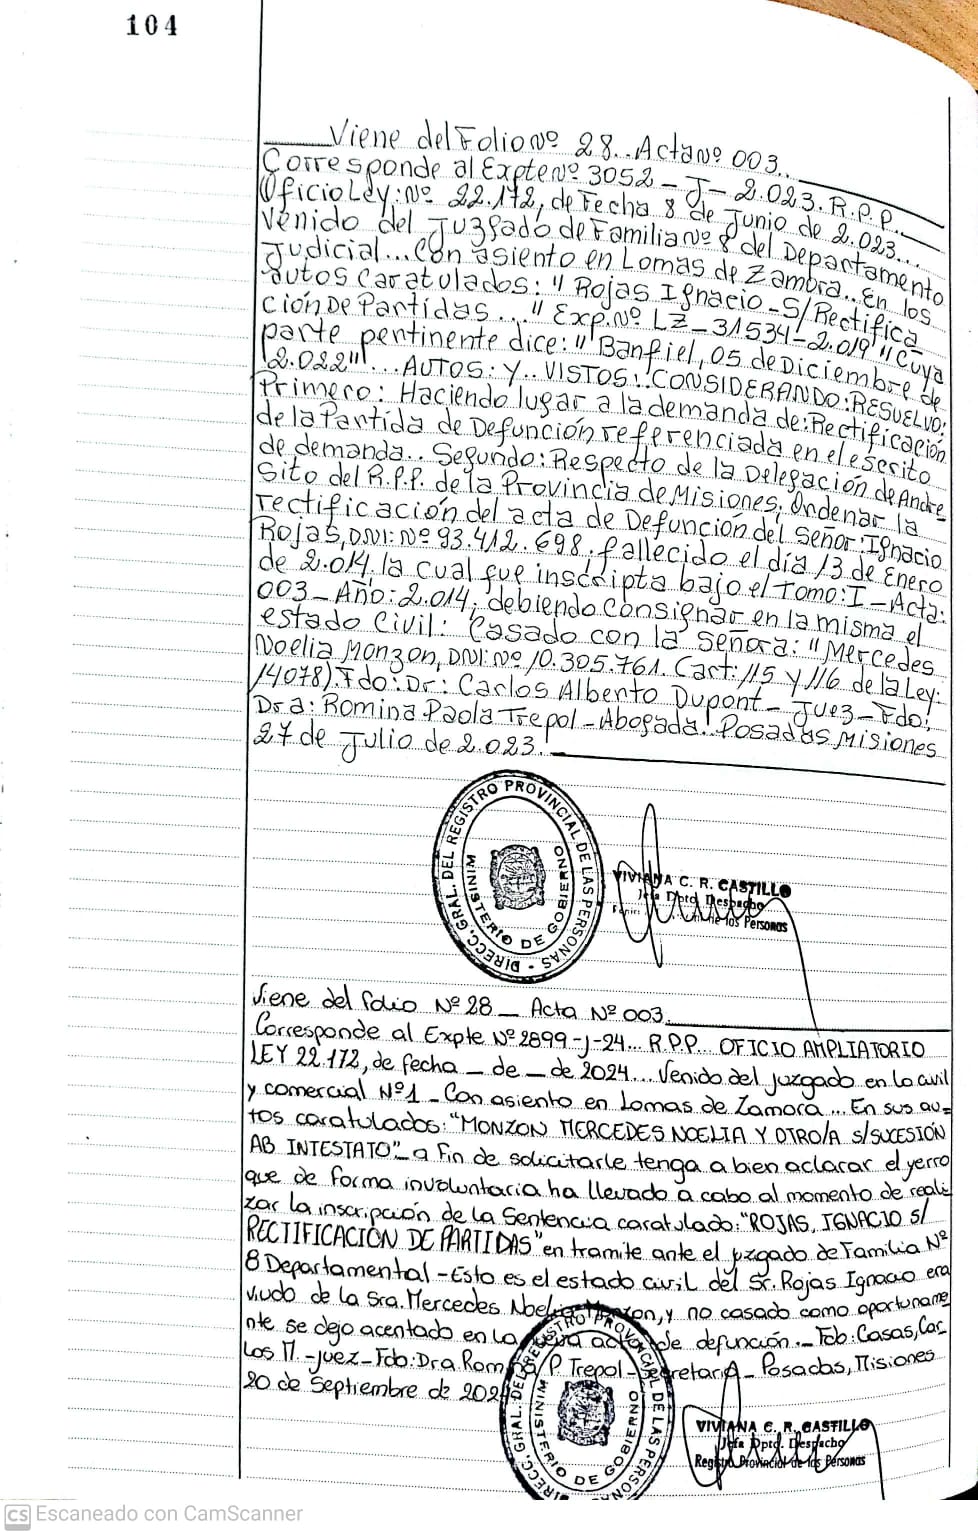 104
Viene del Folio Nº 28.. Acta Nº 003..
Corresponde al Expte Nº 3052 - J - 2.023. R.P.P.
Oficio Ley: Nº 22.172, de Fecha 8 de Junio de 2.023...
Venido del Juzgado de Familia Nº 8 del Departamento
Judicial... Con asiento en Lomas de Zamora.. En los
autos caratulados: " Rojas Ignacio - S/Rectifica
ción De Partidas..." Exp. Nº LZ - 31534 - 2.019 " Cuya
parte pertinente dice: " Banfiel, 05 de Diciembre de
2.022"... AUTOS: Y.. VISTOS: CONSIDERANDO: RESUELVO:
Primero: Haciendo lugar a la demanda de: Rectificación
de la Partida de Defunción referenciada en el escrito
de demanda.. Segundo: Respecto de la Delegación de Andre
sito del R.P.P. de la Provincia de Misiones, Ordenar la
rectificación del acta de Defunción del Señor: Ignacio
Rojas, DNI: Nº 93.412.698. fallecido el día 13 de Enero
de 2.014. la cual fue inscripta bajo el Tomo: I - Acta:
003 - Año: 2.014, debiendo consignar en la misma el
estado Civil: Casado con la Señora: "Mercedes
Noelia Monzon, DNI: Nº 10.305.761. Cart: 115 y 116 de la Ley:
14078). Fdo: Dr: Carlos Alberto Dupont - Juez - Fdo:
Dra: Romina Paola Trepol - Abogada. Posadas Misiones
27 de Julio de 2.023.
DIRECC. GRAL. DEL REGISTRO PROVINCIAL DE LAS PERSONAS
MINISTERIO DE GOBIERNO
VIVIANA C. R. CASTILLO
Jefa Dptd. Despacho
de las Personas
Viene del folio Nº 28 - Acta Nº 003.
Corresponde al Expte Nº 2899-J-24... R.P.P. OFICIO AMPLIATORIO
LEY 22.172, de fecha _ de _ de 2024... Venido del juzgado en lo civil
y comercial Nº 1 - Con asiento en Lomas de Zamora... En sus au-
tos caratulados: "MONZON MERCEDES NOELIA Y OTRO/A S/SUCESIÓN
AB INTESTATO" - a fin de solicitarle tenga a bien aclarar el yerro
que de forma involuntaria ha llevado a cabo al momento de reali
zar la inscripción de la Sentencia caratulado: "ROJAS, IGNACIO S/
RECTIFICACIÓN DE PARTIDAS" en tramite ante el juzgado de Familia Nº
8 Departamental - Esto es el estado civil del Sr. Rojas Ignacio era
viudo de la Sra. Mercedes Noelia Monzon, y no casado como oportuname
nte se dejo acentado en la nueva acta de defunción. - Fdo: Casas, Car
los M. - juez - Fdo: Dra. Romina P. Trepol - Secretaria - Posadas, Misiones
20 de Septiembre de 2024
DIRECC. GRAL. DEL REGISTRO PROVINCIAL DE LAS PERSONAS
MINISTERIO DE GOBIERNO
VIVIANA C. R. CASTILLO
Jefa Dptd. Despacho
Registro Provincial de las Personas
CS Escaneado con CamScanner